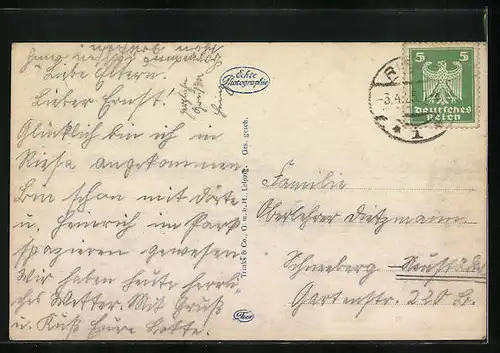 Liebe Eltern.
Lieber Ernst.
Glücklich bin ich in
Riesa angekommen
bin schon mit Dörte
u. Heinrich im Park
spazieren gewesen
Wir haben heute herrli-
ches Wetter. Mit Gruß
u. Kuß Eure Lotte.
herzliche
Grüße
Echte
Photographie
Trinks & Co., G. m. b. H., Leipzig. Ges. gesch.
Trico
5 5
Deutsches
Reich
-3.4.25
* 1 *
Familie
Oberlehrer Dietzmann
Schneeberg Neustädtel
Gartenstr. 220 B.